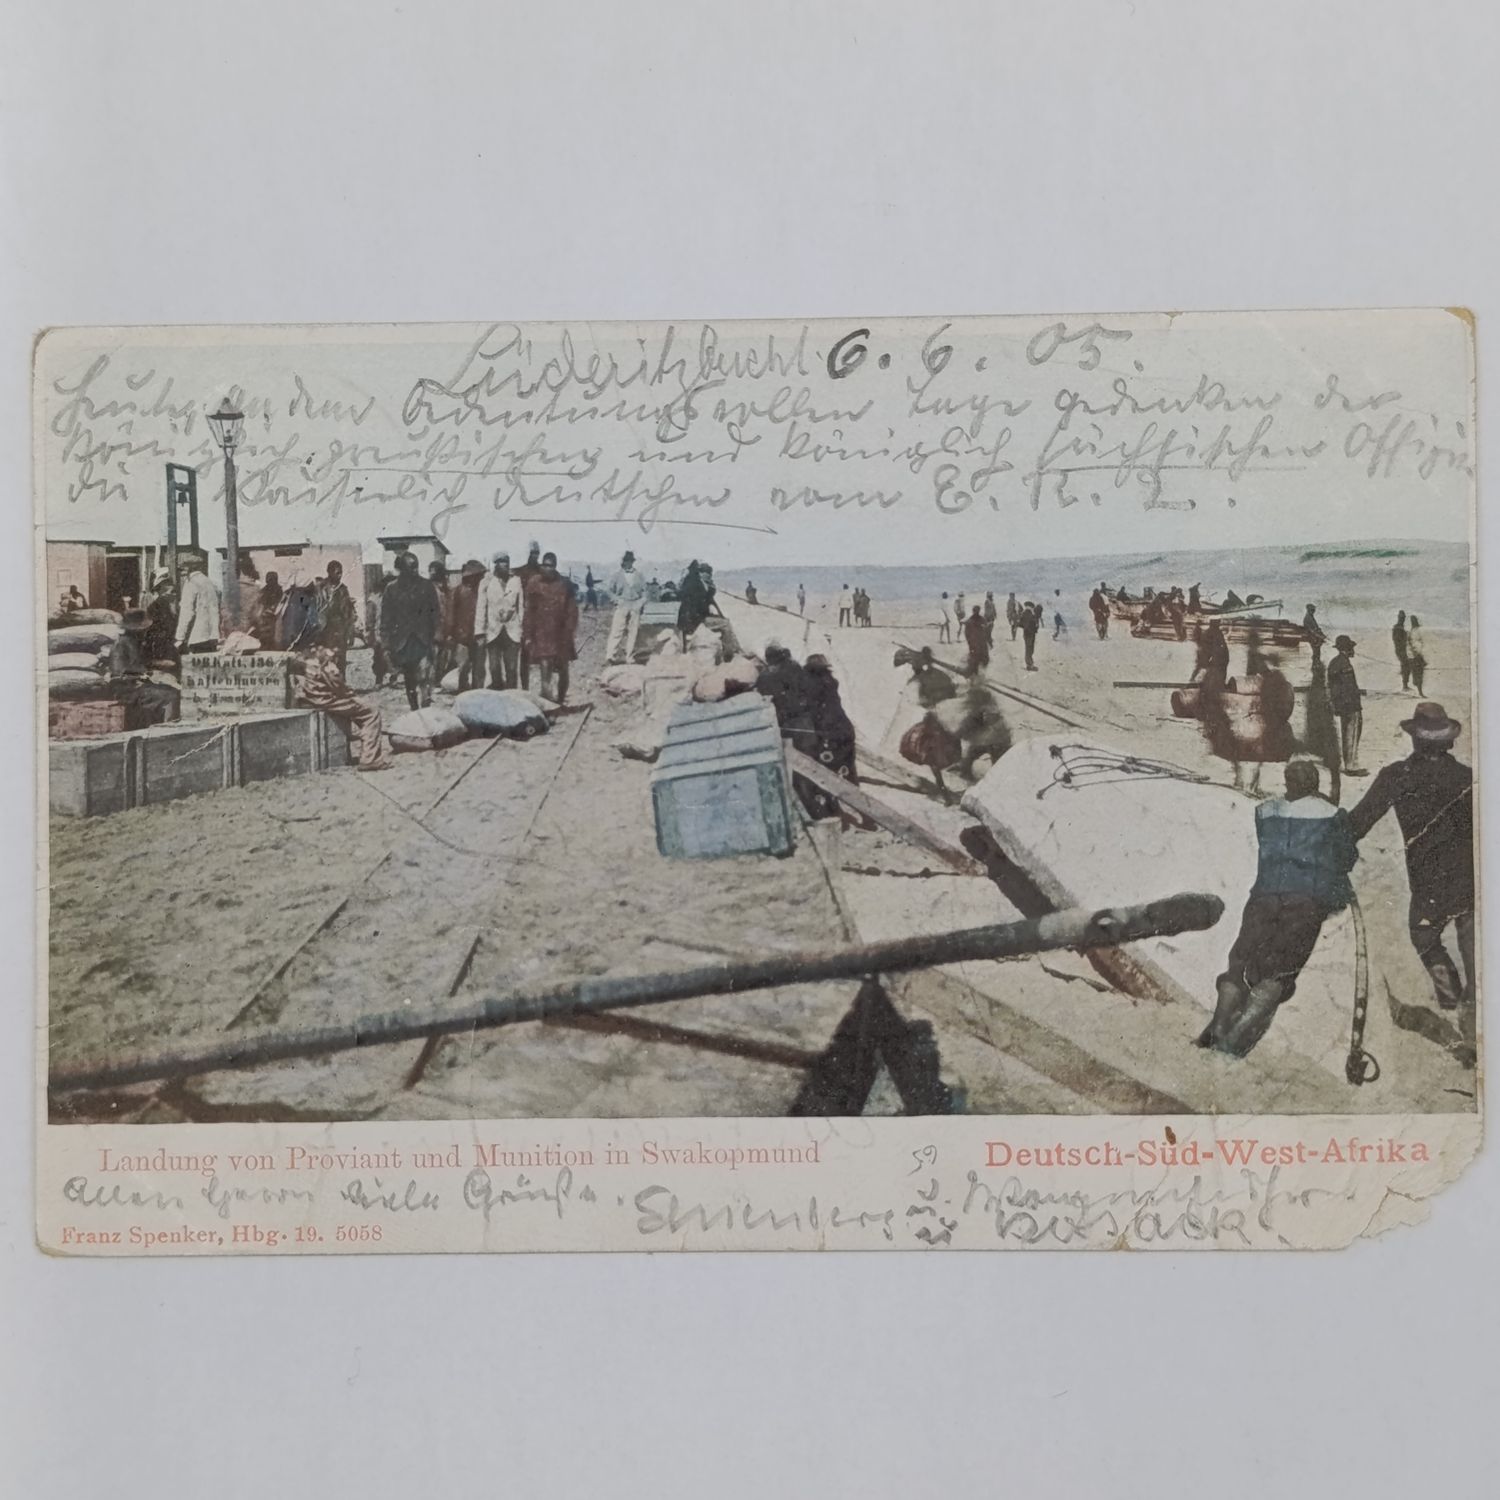 Lüderitzbucht 6. 6. 05.
Heute, an dem bedeutungsvollen Tage gedenken der
königlich preußischen und königlich sächsischen Offizie
die Kaiserlich deutschen vom E. K. 2.
Landung von Proviant und Munition in Swakopmund
Deutsch-Süd-West-Afrika
Allen Herren viele Grüße.
Franz Spenker, Hbg. 19. 5058